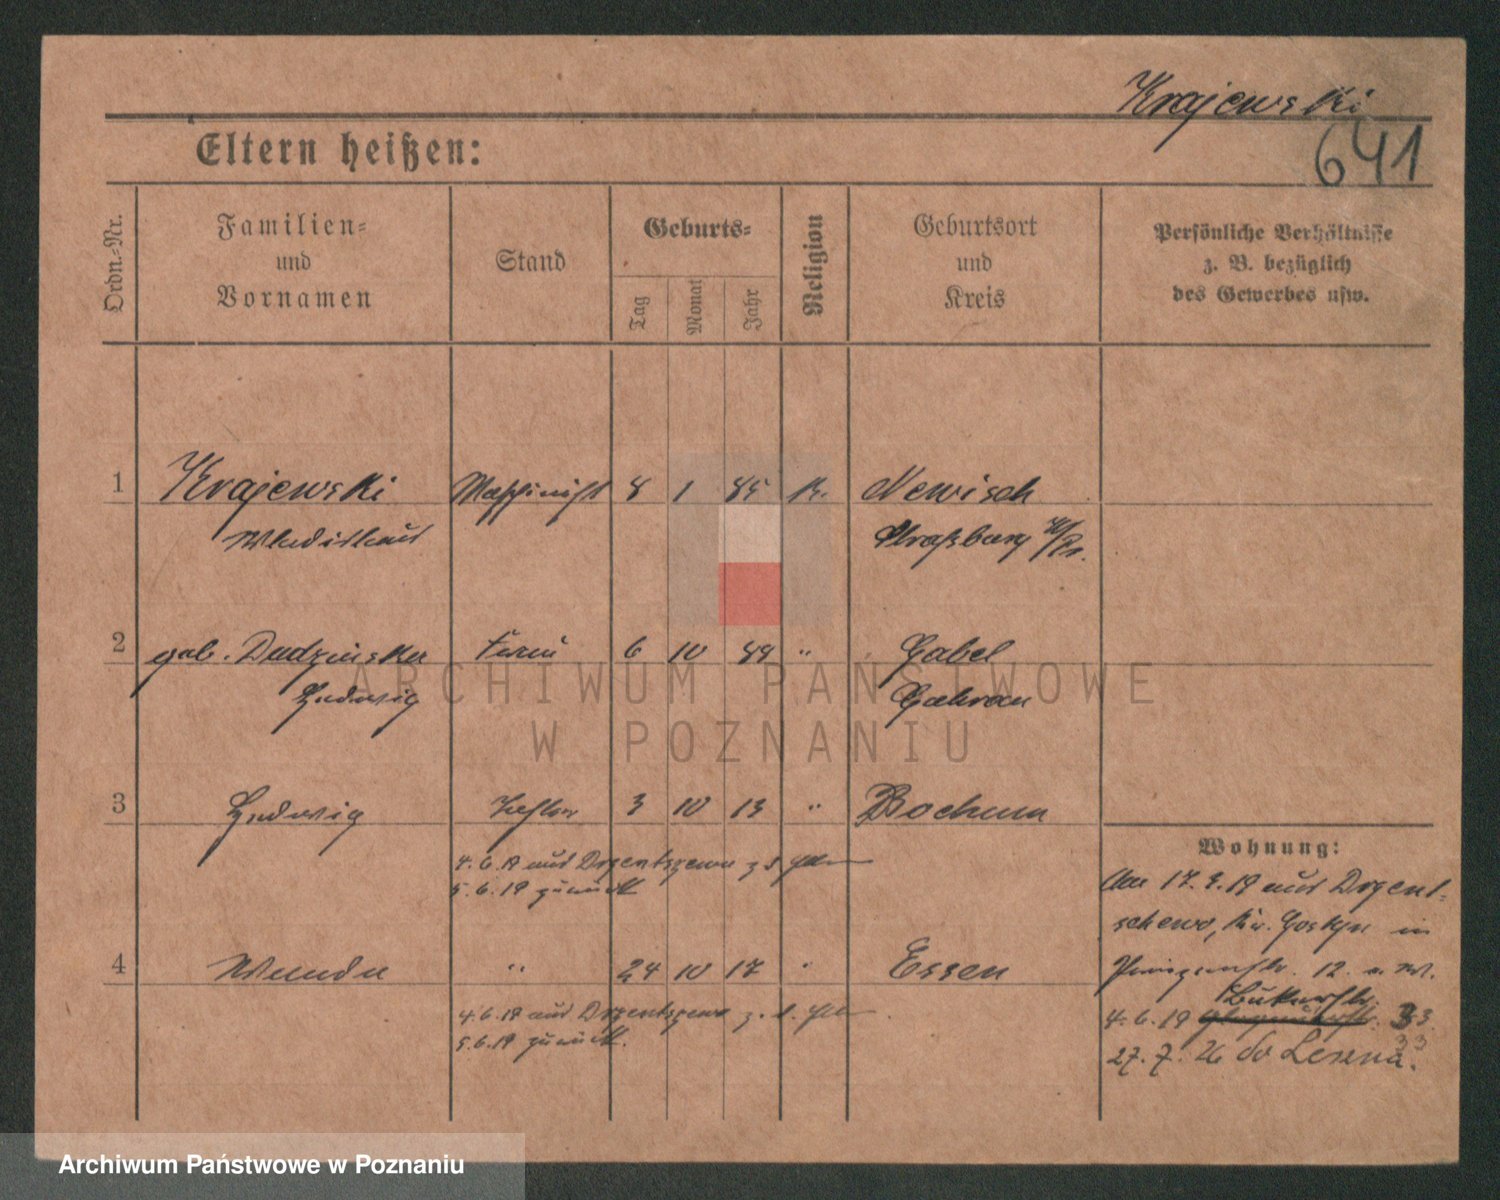 Krajewski
641
Eltern heißen:
Ordn.-Nr.
Familien-
und
Vornamen
Stand
Geburts-
Tag
Monat
Jahr
Religion
Geburtsort
und
Kreis
Persönliche Verhältnisse
z. B. bezüglich
des Gewerbes usw.
1 Krajewski Maschinist 8 1 85 K. Newisch
Wladislaus Straßburg W/Pr.
2 geb. Dudzinska Frau 6 10 89 " Gabel
Hedwig Guhrau
3 Hedwig Tochter 3 10 13 " Bochum
4.6.19 aus
5.6.19 zurück
4 Wanda " 24 10 17 " Essen
4.6.19 aus
5.6.19 zurück.
Wohnung:
17. 19 aus
schewo, Kr. Gostyn in
12.
4.6.19 33
27.7.26 do Leszna.
ARCHIWUM PAŃSTWOWE
W POZNANIU
Archiwum Państwowe w Poznaniu